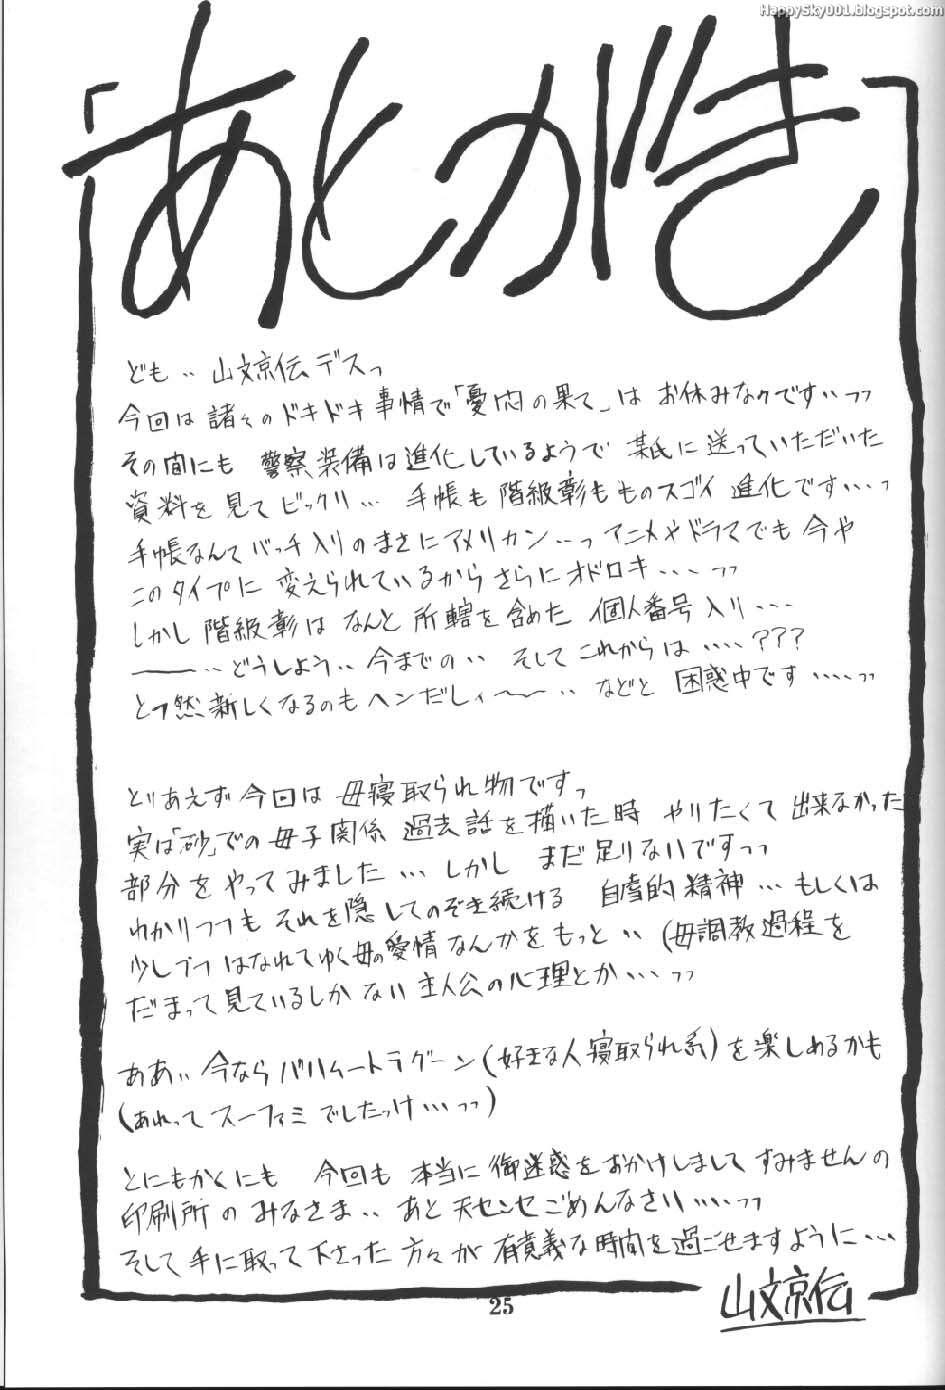 HappySky001.blogspot.com
あとがき
ども‥山文京伝デスっ
今回は諸々のドキドキ事情で「憂悶の果て」はお休みなのです‥ッッ
その間にも警察装備は進化しているようで某氏に送っていただいた
資料を見てビックリ… 手帳も階級彰もものスゴイ進化です…っ
手帳なんてバッチ入りのまさにアメリカン…っアニメやドラマでも今や
このタイプに変えられているからさらにオドロキ…ッッ
しかし階級彰はなんと所轄を含めた個人番号入り…
――‥どうしよう‥今までの‥そしてこれからは‥‥???
とつ然新しくなるのもヘンだしィ〜〜‥などと困惑中です‥‥ッッ
とりあえず今回は母寝取られ物ですっ
実は「砂」での母子関係過去話を描いた時やりたくて出来なかった
部分をやってみました…しかしまだ足りないですッッ
わかりつつもそれを隠してのぞき続ける自虐的精神…もしくは
少しづつはなれてゆく母の愛情なんかをもっと‥(母調教過程を
だまって見ているしかない主人公の心理とか…ッッ
ああ‥今ならバハムートラグーン(好きな人寝取られ系)を楽しめるかも
(あれってスーファミでしたっけ…ッッ)
とにもかくにも 今回も本当に御迷惑をおかけしましてすみませんの
印刷所のみなさま‥あと天センセごめんなさい‥‥ッッ
そして手に取って下さった方々が有意義な時間を過ごせますように…
山文京伝
25